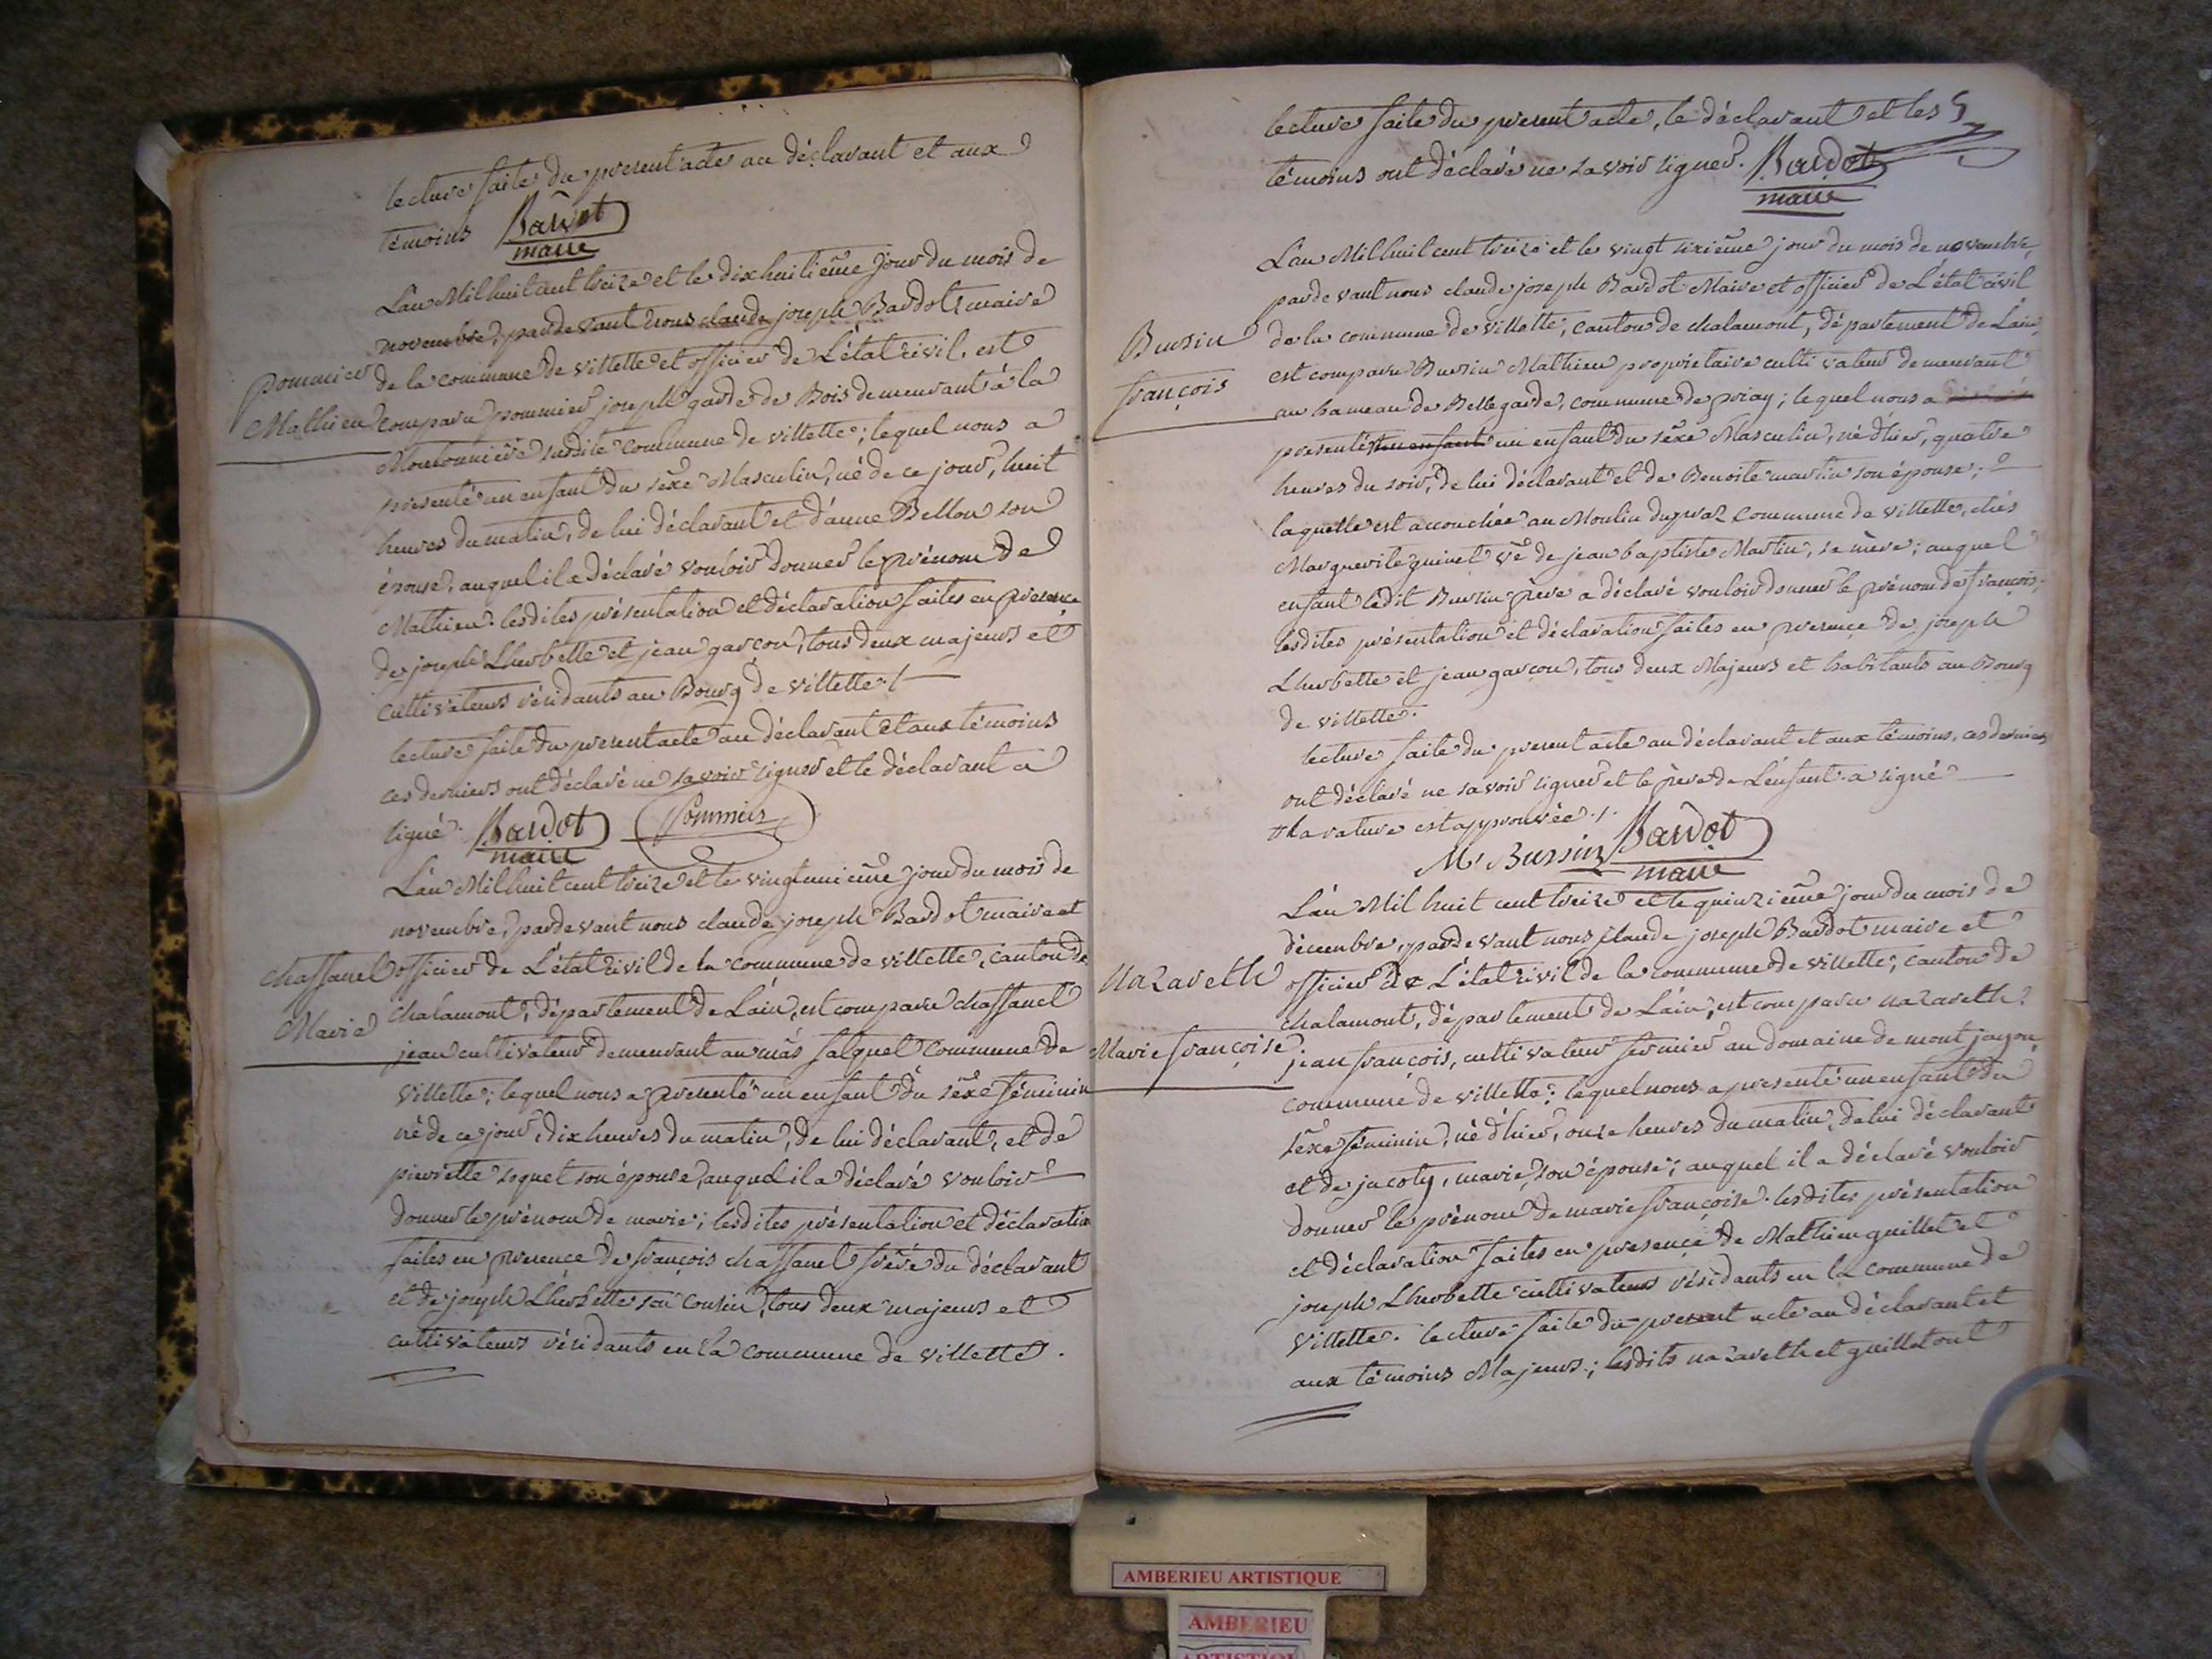 lecture faite du present acte au déclarant et aux
témoins Bardot
maire
L'an Mil huit cent treize et le dix huitième jour du mois de
novembre, pardevant nous claude joseph Bardot maire
de la commune de villette et officier de L'état civil, est
pommier
Mathieu
comparu pommier joseph garde de Bois demeurant à la
Moutonnière susdite commune de villette; lequel nous a
presenté un enfant du sèxe Masculin, né de ce jour, huit
heures du matin, de lui déclarant et d'anne Bellon son
épouse, auquel il a déclaré vouloir donner le prénom de
Mathieu. lesdites présentation et déclaration faites en presence
de joseph Lherbette et jean garcon, tous deux majeurs et
cultivateurs résidants au Bourg de villette /
lecture faite du present acte au déclarant et aux témoins
ces derniers ont déclaré ne savoir signer et le déclarant a
signé. Bardot Pommier
maire
L'an Mil huit cent treize et le vingtunième jour du mois de
novembre, pardevant nous claude joseph Bardot maire et
chassanel
Marie
officier de L'état civil de la commune de villette, canton de
chalamont, département de L'ain, est comparu chassanel
jean cultivateur demeurant au mâs salquet commune de
villette; lequel nous a presenté un enfant du sèxe féminin
né de ce jour, dix heures du matin, de lui déclarant, et de
pierrette soquet son épouse, auquel il a déclaré vouloir
donner le prénom de marie; lesdites présentation et déclaration
faites en presence de françois chassanel frère du déclarant
et de joseph Lherbette son cousin, tous deux majeurs et
cultivateurs résidants en la commune de villette.
lecture faite du present acte, le déclarant et les
témoins ont déclaré ne savoir signer. Bardot
maire
L'an Mil huit cent treize et le vingt sixième jour du mois de novembre,
pardevant nous claude joseph Bardot Maire et officier de L'état civil
Bursin
françois
de la commune de villette, canton de chalamont, département de L'ain,
est comparu Bursin Mathieu proprietaire cultivateur demeurant
au hameau de Bellegarde, commune de priay; lequel nous a
presenté un enfant un enfant du sèxe Masculin, né d'hier, quatre
heures du soir, de lui déclarant et de Benoite martin son épouse;
laquelle est accouchée au Moulin du praz commune de villette, chés
Marguerite guinet vê de jean baptiste Martin, sa mère; auquel
enfant ledit Bursin père a déclaré vouloir donner le prénom de françois;
lesdites présentation et déclaration faites en presence de joseph
Lherbette et jean garcon, tous deux Majeurs et habitants au Bourg
de villette.
lecture faite du present acte au déclarant et aux témoins, ces derniers
ont déclaré ne savoir signer et le père de L'enfant a signé
# la rature est approuvée ./.
M. Bursin Bardot
maire
L'an Mil huit cent treize et le quinzième jour du mois de
décembre, pardevant nous claude joseph Bardot maire et
Nazareth
Marie françoise
officier de L'état civil de la commune de villette, canton de
chalamont, département de L'ain, est comparu nazareth
jean françois, cultivateur fermier au domaine de mont jayon,
commune de villette; lequel nous a presenté un enfant du
sèxe féminin, né d'hier, onze heures du matin, de lui déclarant
et de jacoty, marie, son épouse; auquel il a déclaré vouloir
donner le prénom de marie françoise. lesdites présentation
et déclaration faites en presence de Mathieu guillet et
joseph Lherbette cultivateurs résidants en la commune de
villette. lecture faite du present acte au déclarant et
aux témoins Majeurs; lesdits nazareth et guillet ont
AMBERIEU ARTISTIQUE
AMBERIEU
ARTISTIQUE